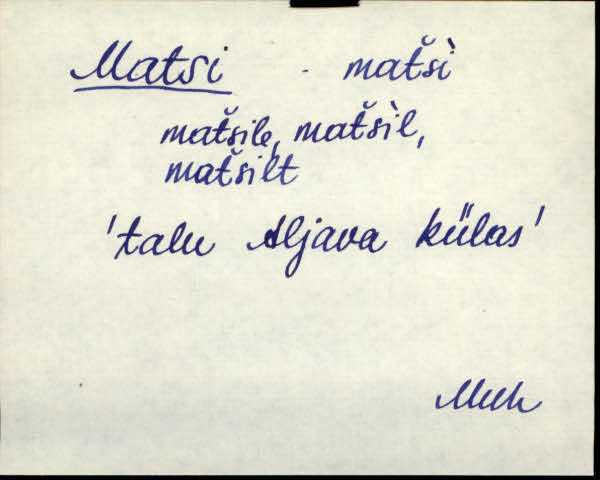 Matsi - mat̆šì
mat̆šile, mat̆šìl,
mat̆šilt
'talu Aljava külas'
Muh